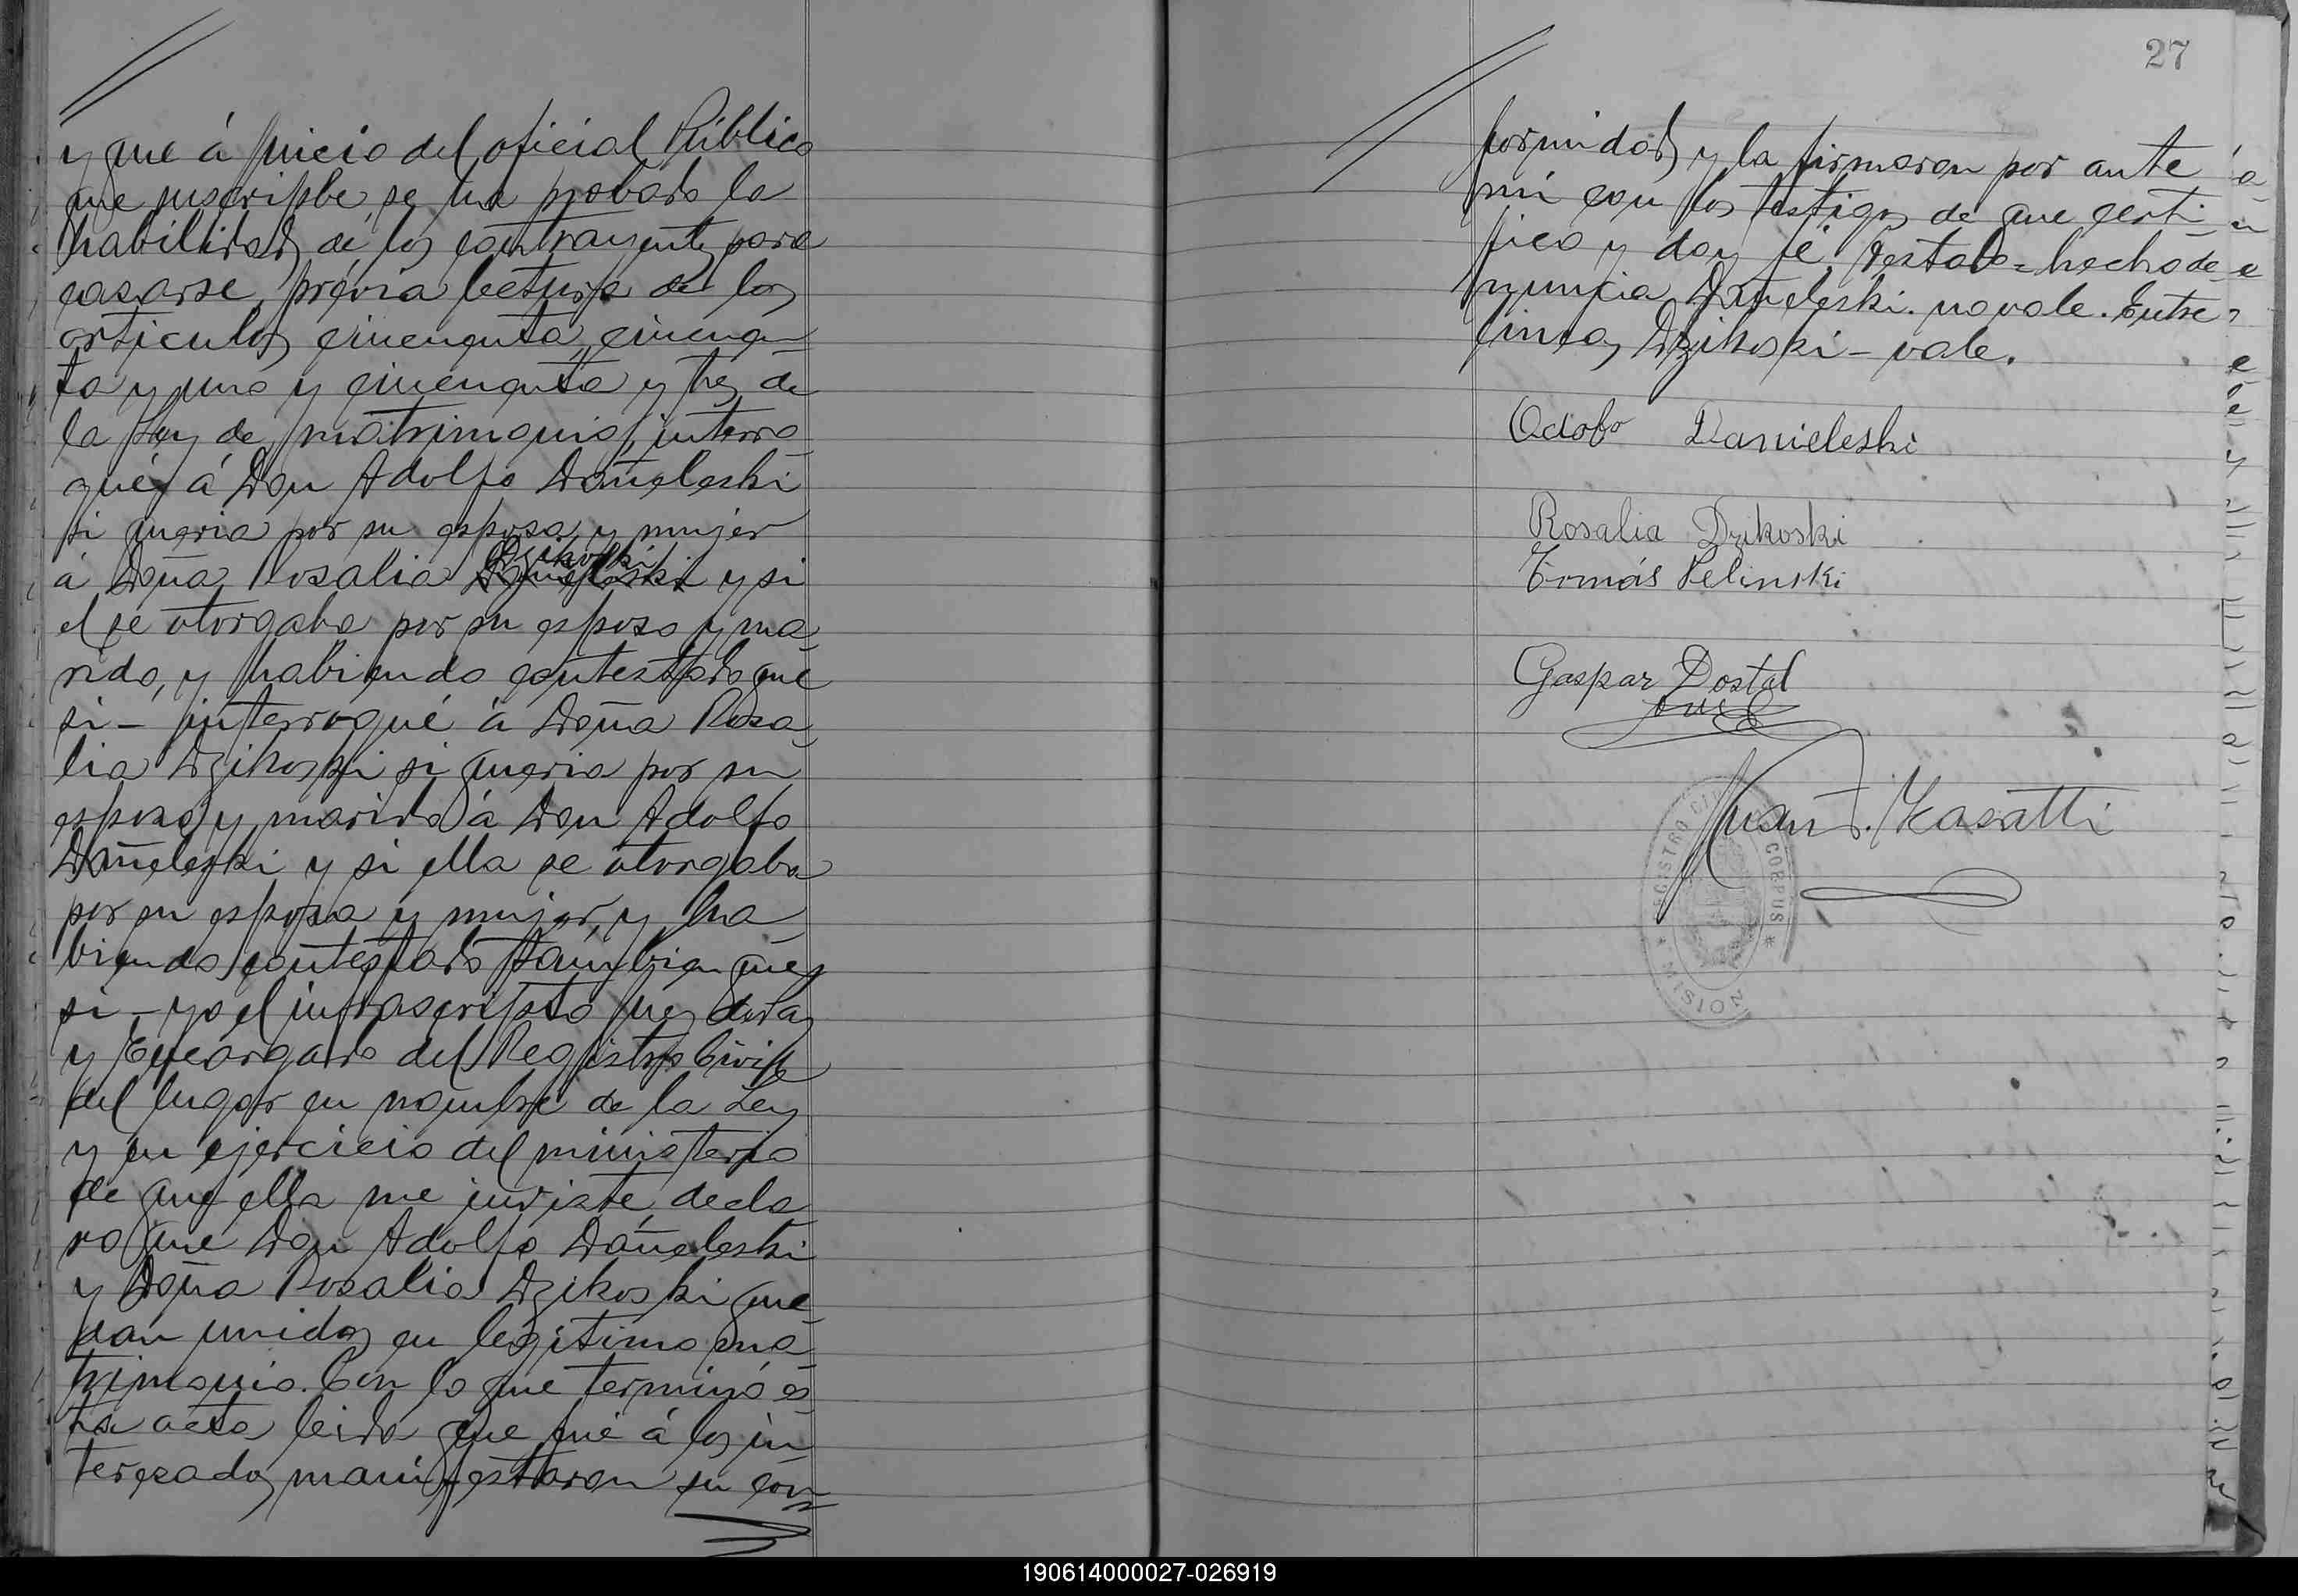 y que á juicio del oficial Público
que suscribe, se ha probado la
habilidad de los contrayentes para
casarse, prévia lectura de los
articulos cincuenta, cincuen-
ta y uno y cincuenta y tres de
la Ley de matrimonio, interro-
gué á Don Adolfo Dañeleski
si queria por su esposa y mujer
á Doña Rosalia Dzikoski y si
el se otorgaba por su esposo y ma-
rido, y habiendo contestado que
si - interrogué á Doña Rosa-
lia Dzikoski si queria por su
esposo y marido á Don Adolfo
Dañeleski y si ella se otorgaba
por su esposa y mujer, y ha-
biendo contestado tambien que
si - yo el infrascripto Juez de Paz
y Encargado del Registro Civil
del lugar en nombre de la Ley
y en ejercicio del ministerio
de que ella me inviste, decla-
ro que Don Adolfo Dañeleski
y Doña Rosalia Dzikoski que-
dan unidos en legitimo ma-
trimonio. Con lo que terminó es-
ta acta leida que fué á los in-
teresados manifestaron su con-
27
formidad y la firmaron por ante
mi con los testigos de que certi-
fico y doy fé. Testado = hecho de-
nuncia Dañeleski. no vale. Entre-
lineas Dzikoski - vale.
Odolfo Danieleski
Rosalia Dzikoski
Tomás Pelinski
Gaspar Dostal
Juan F. Kasatti
REGISTRO CIVIL CORPUS
* MISIONES *
190614000027-026919